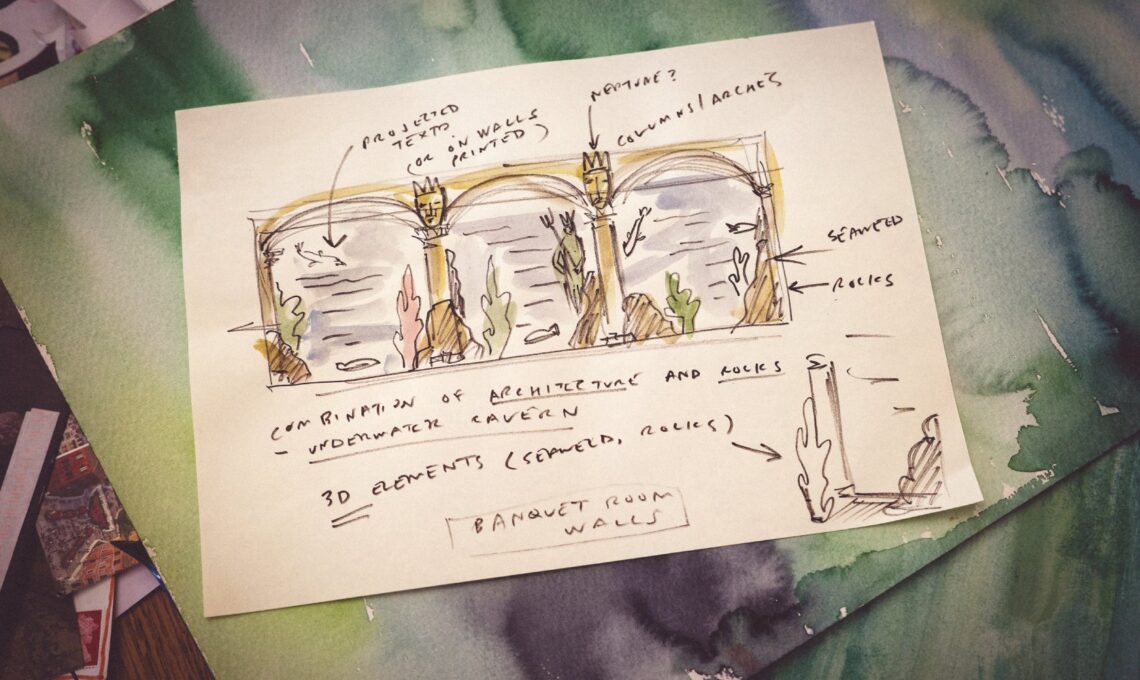 PROJECTED
TEXTS
(OR ON WALLS
PRINTED)
NEPTUNE?
COLUMNS/ARCHES
SEAWEED
ROCKS
COMBINATION OF ARCHITECTURE AND ROCKS
- UNDERWATER CAVERN
3D ELEMENTS (SEAWEED, ROCKS)
BANQUET ROOM
WALLS